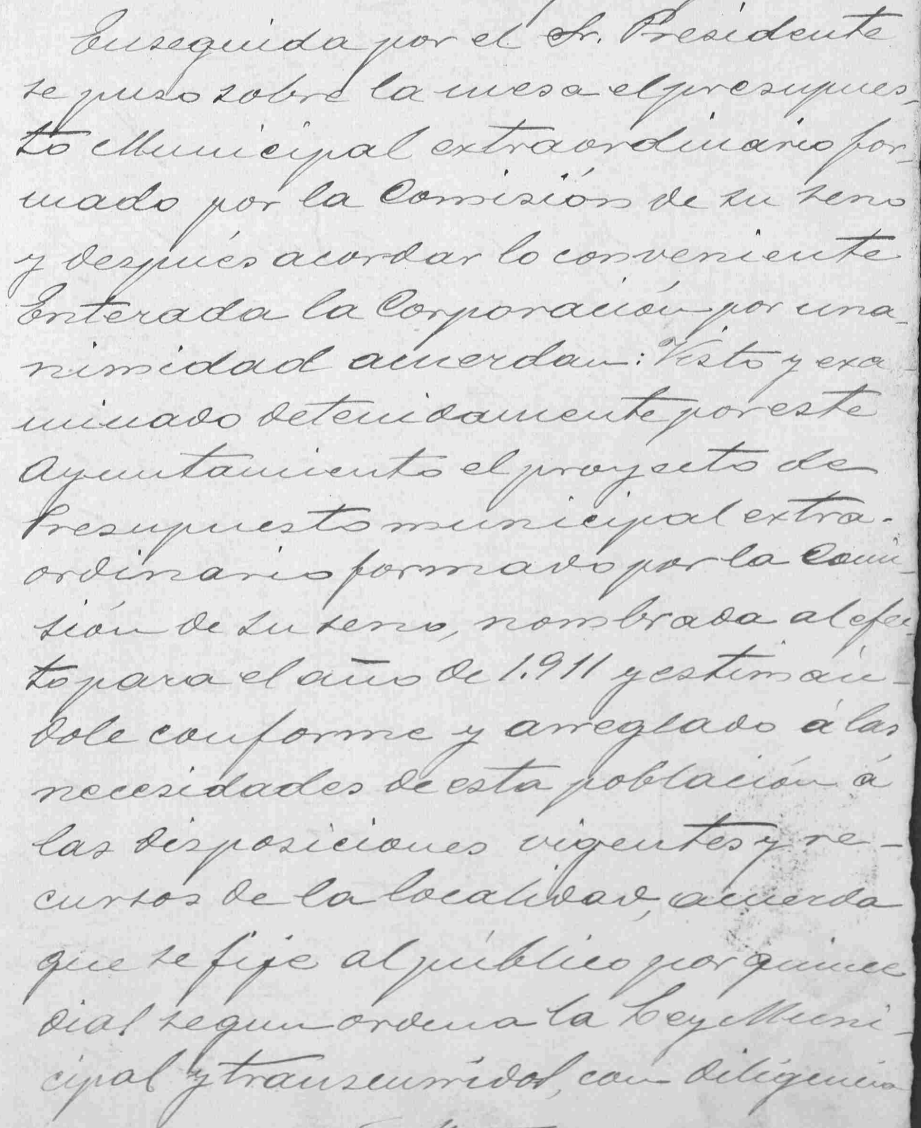 Enseguida por el Sr. Presidente
se puso sobre la mesa el presupues-
to Municipal extraordinario for-
mado por la Comisión de su seno
y después acordar lo conveniente
Enterada la Corporación por una-
nimidad acuerdan: Visto y exa-
minado detenidamente por este
Ayuntamiento el proyecto de
Presupuesto municipal extra-
ordinario formado por la Comi-
sión de su seno, nombrada al efec-
to para el año de 1.911 y estimán-
dole conforme y arreglado á las
necesidades de esta población á
las disposiciones vigentes y re-
cursos de la localidad, acuerda
que se fije al público por quince
dias segun ordena la Ley Muni-
cipal y transcurridos, con diligencia